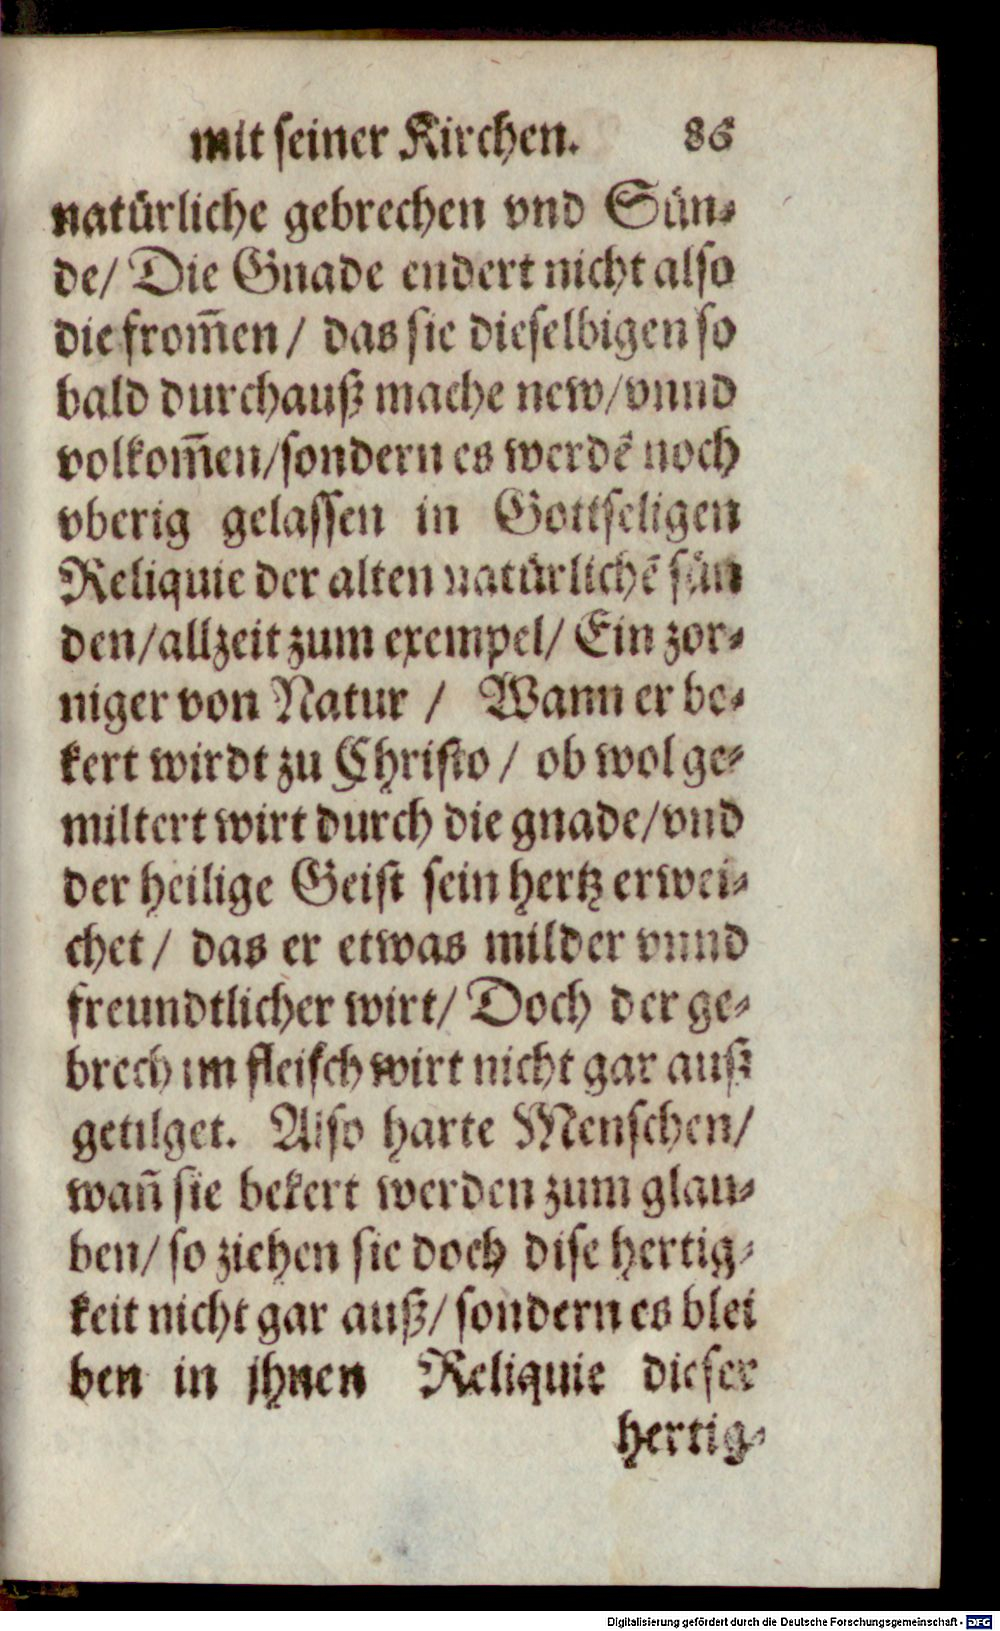 mit seiner Kirchen. 86
natürliche gebrechen vnd Sün-
de/ Die Gnade endert nicht also
die from̅en/ das sie dieselbigen so
bald durchauß mache new/vnnd
volkom̅en/sondern es werdẽ noch
vberig gelassen in Gottseligen
Reliquie der alten natürlichẽ sün
den/allzeit zum exempel/ Ein zor-
niger von Natur / Wann er be-
kert wirdt zu Christo/ ob wol ge-
miltert wirt durch die gnade/vnd
der heilige Geist sein hertz erwei-
chet/ das er etwas milder vnnd
freundtlicher wirt/ Doch der ge-
brech im fleisch wirt nicht gar auß
getilget. Also harte Menschen/
wañ sie bekert werden zum glau-
ben/ so ziehen sie doch dise hertig-
keit nicht gar auß/ sondern es blei
ben in jhnen Reliquie dieser
hertig-
Digitalisierung gefördert durch die Deutsche Forschungsgemeinschaft - DFG